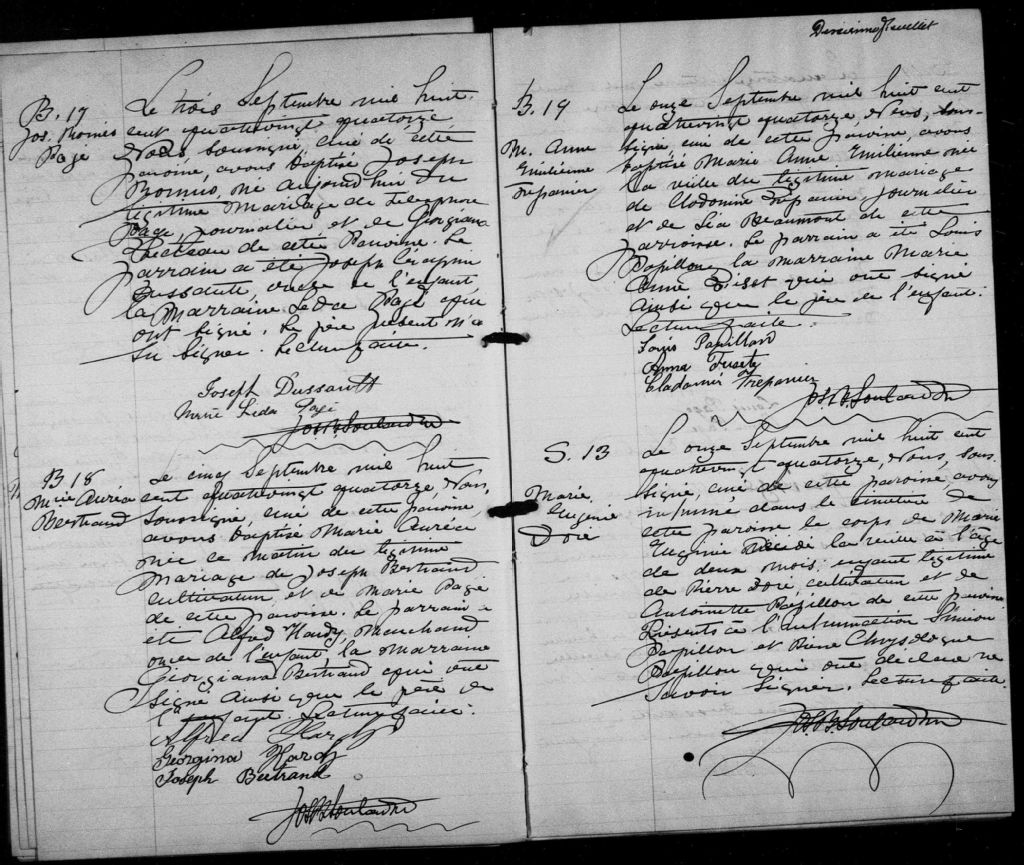 B. 17
Jos. Roméo
Pagé
Le trois Septembre mil huit
cent quatrevingt quatorze
Nous soussigné, curé de cette
paroisse, avons baptisé Joseph
Roméo, né aujourd'hui du
légitime mariage de Télesphore
Pagé journalier et de Georgiana
de cette Paroisse. Le
parrain a été Joseph
Dussault, oncle de l'enfant,
la Marraine Léda Pagé qui
ont signé. Le père présent n'a
su signer. Lecture faite.
Joseph Dussault
Marie Leda Pagé
B 18
Mrie Auréa
Bertrand
Le cinq Septembre mil huit
cent quatrevingt quatorze, Nous,
soussigné, curé de cette paroisse,
avons baptisé Marie Auréa
née ce matin du légitime
mariage de Joseph Bertrand
cultivateur, et de Marie Pagé
de cette paroisse. Le parrain a
été Alfred Hardy, Marchand
oncle de l'enfant, la marraine
Georgiana Bertrand qui ont
signé ainsi que le père de
l'enfant. Lecture faite.
Alfred Hardy
Georgina Hardy
Joseph Bertrand
feuillet
B. 19
M. Anne
Emilienne
Trépanier
Le onze Septembre mil huit cent
quatrevingt quatorze, Nous, sous-
signé, curé de cette paroisse, avons
baptisé Marie Anne Emilienne née
la veille du légitime mariage
de Clodomir Trépanier, journalier
et de Léa Beaumont de cette
paroisse. Le parrain a été Louis
Papillon, la marraine Marie
Anne qui ont signé
ainsi que le père de l'enfant.
Lecture faite.
Louis Papillon
Anna
Cladamir Trepanier
S. 13
Marie
Eugénie
Doré
Le onze Septembre mil huit cent
quatrevingt quatorze, Nous, sous-
signé, curé de cette paroisse, avons
inhumé dans le cimetière de
cette paroisse le corps de Marie
Eugénie décédé la veille à l'âge
de deux mois, enfant légitime
de Pierre Doré, cultivateur et de
Antoinette Papillon de cette paroisse
Présents à l'inhumation Siméon
Papillon et Pierre Chrysologue
Papillon qui ont déclaré ne
savoir signer. Lecture faite.